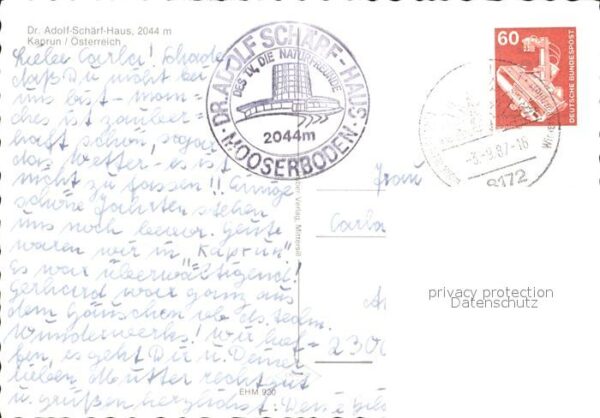 Dr. Adolf-Schärf-Haus, 2044 m
Kaprun / Österreich
Liebe Carla! Schade
daß Du nicht bei
uns bist - man-
ches ist zauber-
haft schön, sogar
das Wetter - es ist
nicht zu fassen!! Einige
schöne Fahrten stehen
uns noch bevor. Heute
waren wir in "Kaprun"
Es war überwältigend!
Gerhard war ganz aus
dem Häuschen ob des techn.
Wunderwerks! Wir hof-
fen, es geht Dir u. Deiner
lieben Mutter recht gut
u. grüßen herzlichst!
DR. ADOLF SCHÄRF-HAUS
DES T.V. DIE NATURFREUNDE
2044m
MOOSERBODEN
60
DEUTSCHE BUNDESPOST
-8.-9.87-16
8172
Frau
Carla
2300
privacy protection
Datenschutz
EHM 920
Verlag, Mittersill